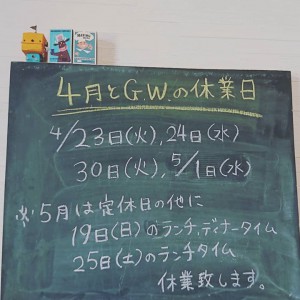 4月とG.W.の休業日
4/23日(火),24日(水)
30日(火),5/1日(水)
※5月は定休日の他に
19日(日)のランチ,ディナータイム
25日(土)のランチタイム
休業致します。